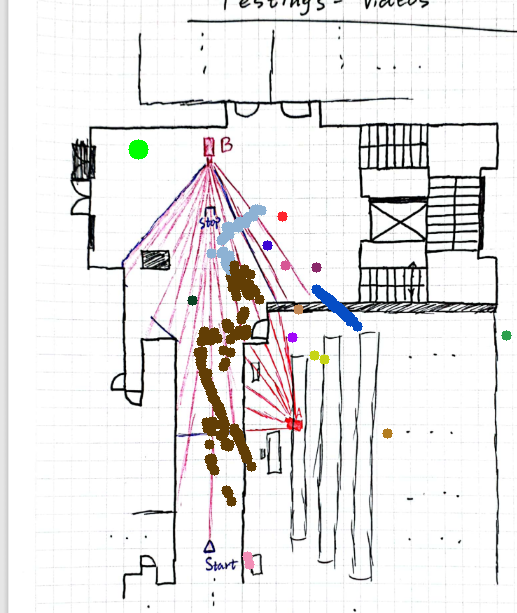 Testings - Videos
B
Stop
A
Start